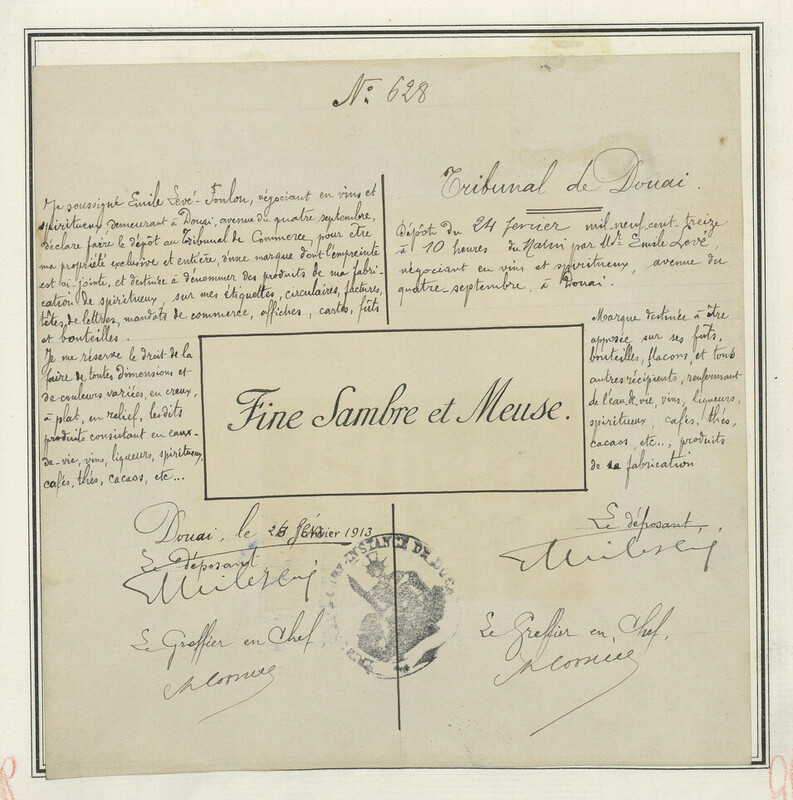 N° 628
Je soussigné Emile Levé-Foulou, négociant en vins et
spiritueux demeurant à Douai, avenue du quatre septembre,
déclare faire le dépôt au Tribunal de Commerce, pour être
ma propriété exclusive et entière, d'une marque dont l'empreinte
est ci-jointe, et destinée à dénommer des produits de ma fabri-
cation de spiritueux, sur mes étiquettes, circulaires, factures,
têtes de lettres, mandats de commerce, affiches, cartes, fûts
et bouteilles.
Je me réserve le droit de la
faire de toutes dimensions et
de couleurs variées, en creux,
à plat, en relief, lesdits
produits consistant en eaux-
de-vie, vins, liqueurs, spiritueux,
cafés, thés, cacaos, etc...
Tribunal de Douai.
Dépôt du 24 février mil-neuf-cent-treize
à 10 heures du Matin par Mr. Emile Levé,
négociant en vins et spiritueux, avenue du
quatre-septembre, à Douai.
Marque destinée à être
apposée sur ses fûts,
bouteilles, flacons, et tous
autres récipients, renfermant
de l'eau de vie, vins, liqueurs,
spiritueux, cafés, thés,
cacaos, etc.., produits
de sa fabrication
Fine Sambre et Meuse.
Douai, le février 1913
Le déposant,
Le Greffier en Chef,
Le déposant,
Le Greffier en Chef,
INSTANCE DE